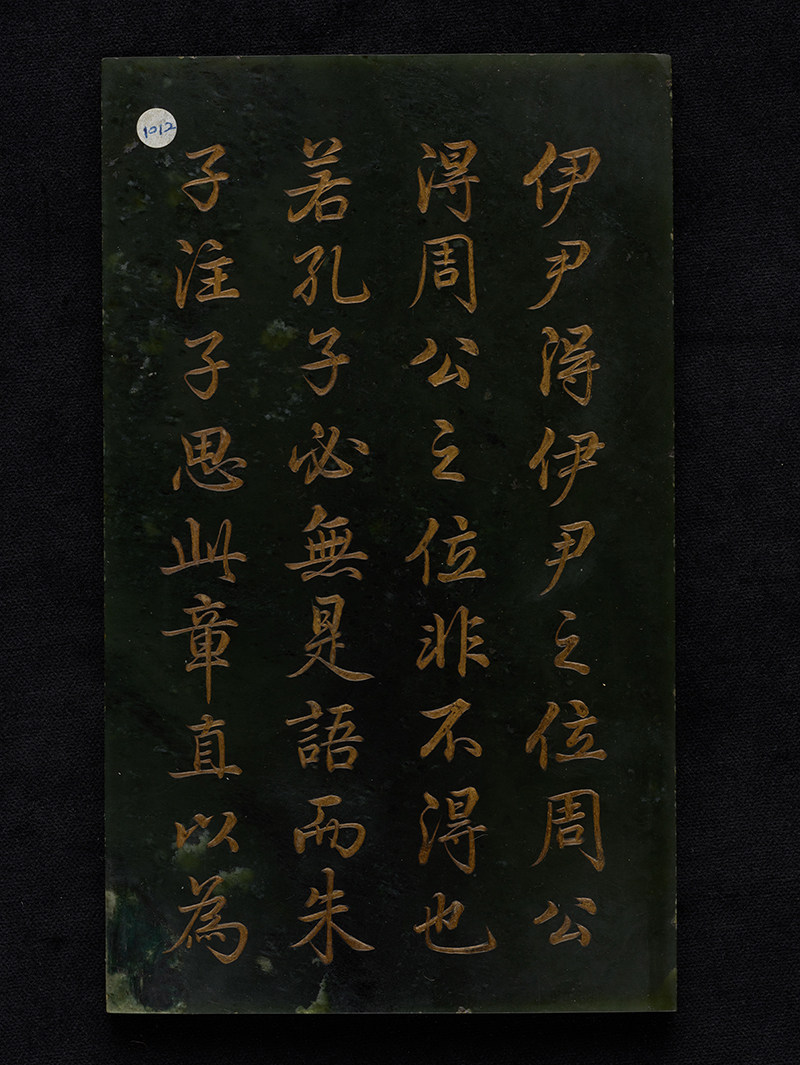 伊尹得伊尹之位周公
得周公之位非不得也
若孔子必無是語而朱
子注子思此章直以為
1012